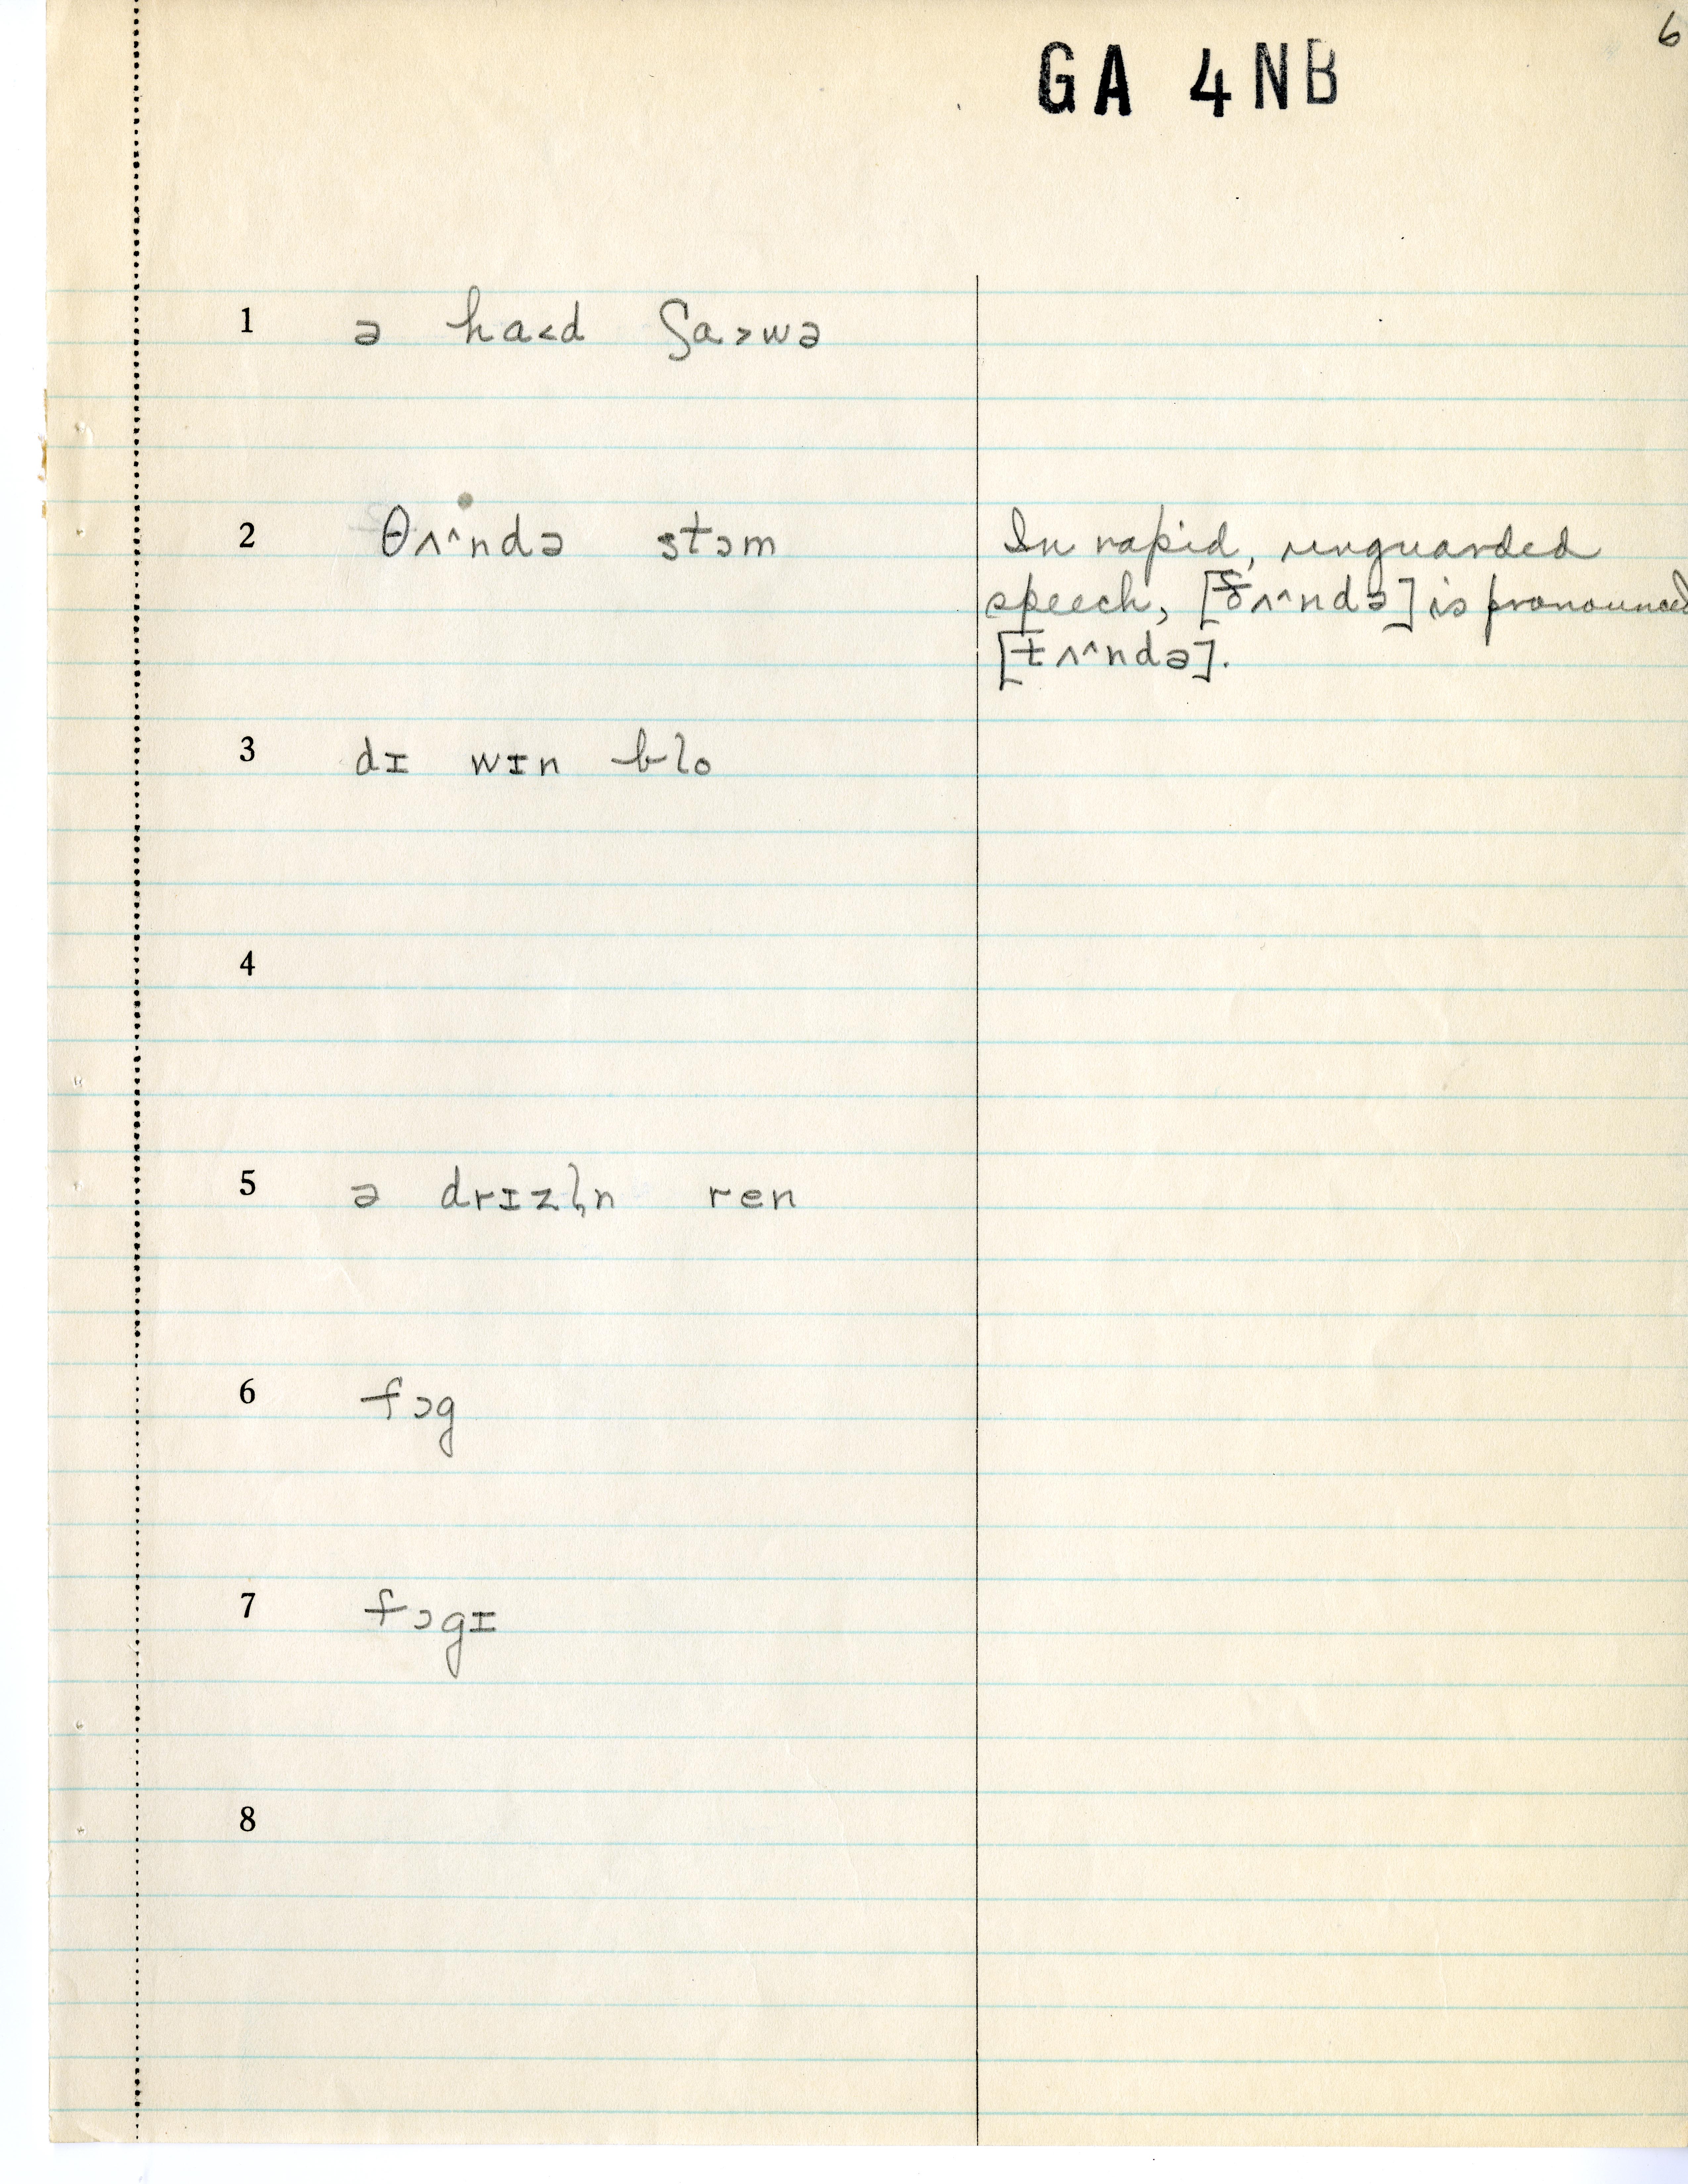 6
GA 4NB
1 ə ha<d ʃa>wə
2 θʌ^ndə stɔm
In rapid, unguarded
speech, [ðʌ^ndə] is pronounced
[tʌ^ndə].
3 dɪ wɪn blo
4
5 ə drɪzl̩n ren
6 fɔg
7 fɔgɪ
8